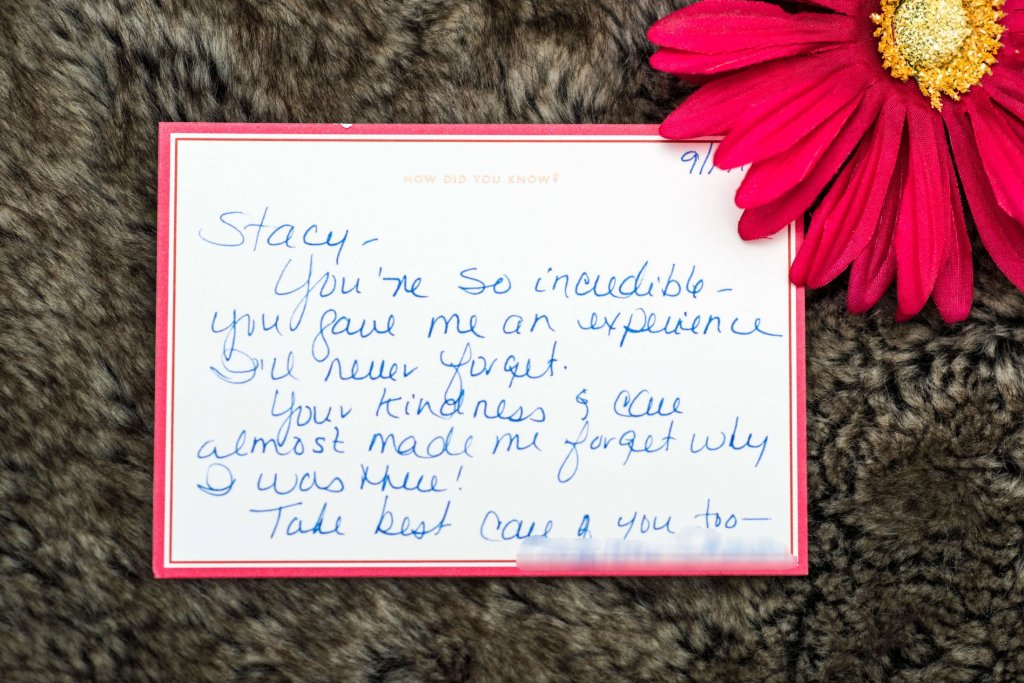 HOW DID YOU KNOW?
9/
Stacy -
You're so incredible -
you gave me an experience
I'll never forget.
Your kindness & care
almost made me forget why
I was there!
Take best care of you too -